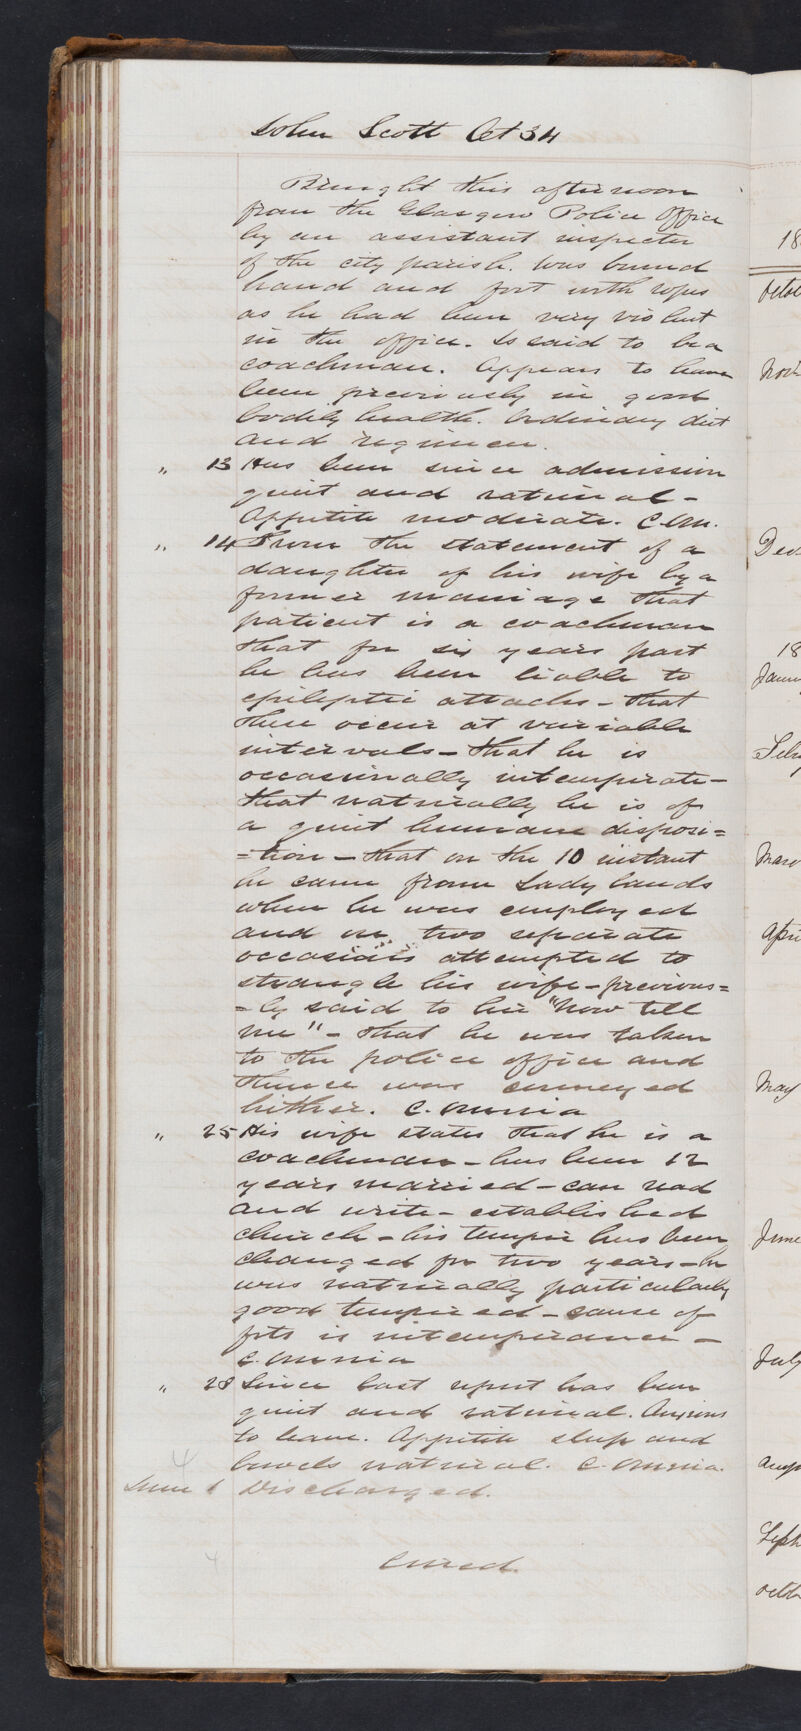 John Scott Aet 34
Brought this afternoon
from the Glasgow Police Office
by an assistant inspector
of the city parish. Was bound
hand and foot with ropes
as he had been very violent
in the office. Is said to be a
coachman. Appears to have
been previously in good
bodily health. Ordinary diet
and regimen.
" 13 Has been since admission
quiet and rational -
Appetite moderate. C. Om.
" 14 From the statement of a
daughter of his wife by a
former marriage that
patient is a coachman
that for six years past
he has been liable to
epileptic attacks - that
these occur at variable
intervals - that he is
occasionally intemperate -
that naturally he is of
a quiet humane disposi=
=tion - that on the 10 instant
he came from Ladylands
where he was employed
and on two separate
occasions attempted to
strangle his wife - previous=
=ly said to her "now tell
me" - that he was taken
to the police office and
thence was conveyed
hither. C. Omnia
" 25 His wife states that he is a
coachman - has been 12
years married - can read
and write - established
church - his temper has been
changed for two years - he
was naturally particularly
good tempered - cause of
fits is intemperance -
C. Omnia
" 28 Since last report has been
quiet and rational. Anxious
to leave. Appetite sleep and
bowels natural. C. Omnia.
4
June 1 Discharged.
4
Cured.
18
Octob
Nov
Dec
18
Janu
Feb
Marc
Apri
May
June
July
Augu
Sept
Octob